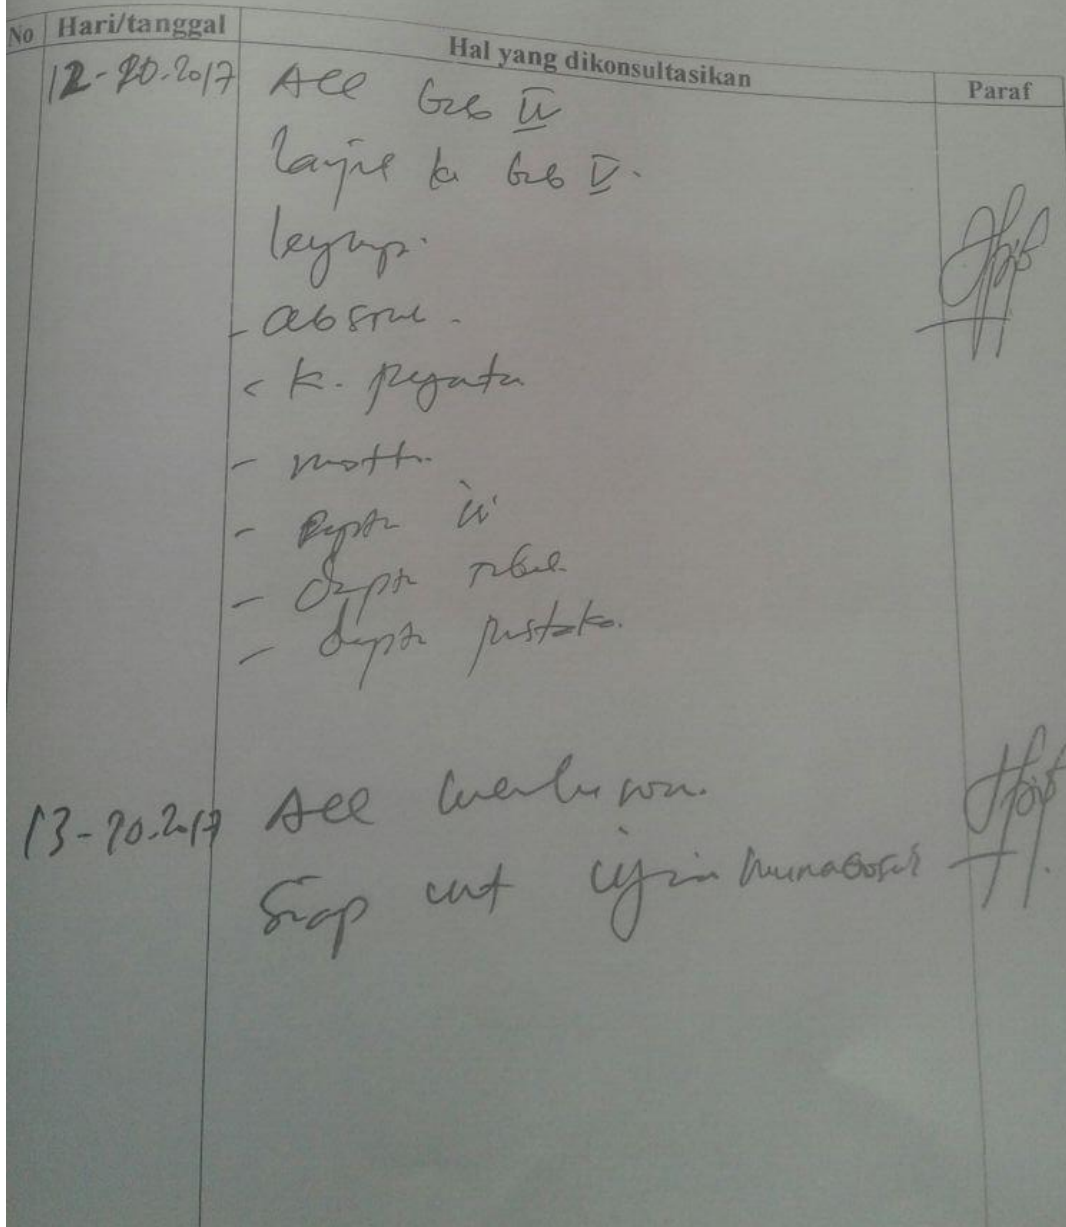 No Hari/tanggal Hal yang dikonsultasikan Paraf
12-10-2017 Acc Bab IV
lanjut ke Bab V.
- abstrak.
- K. Pengantar
- motto
- daftar isi
- daftar tabel
- daftar pustaka.
13-10-2017 Acc
Siap ujian munaqosah